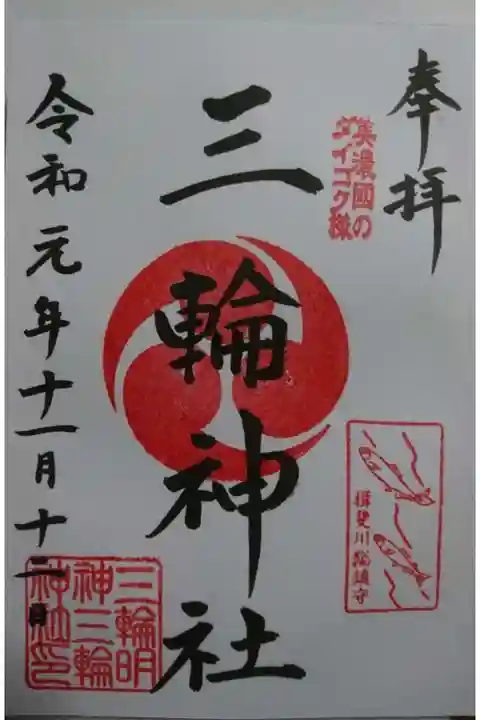 奉拝
美濃國の
ダイコク様
三輪神社
揖斐川鮎鎮守
令和元年十一月十二日
三輪明
神三輪
神社印